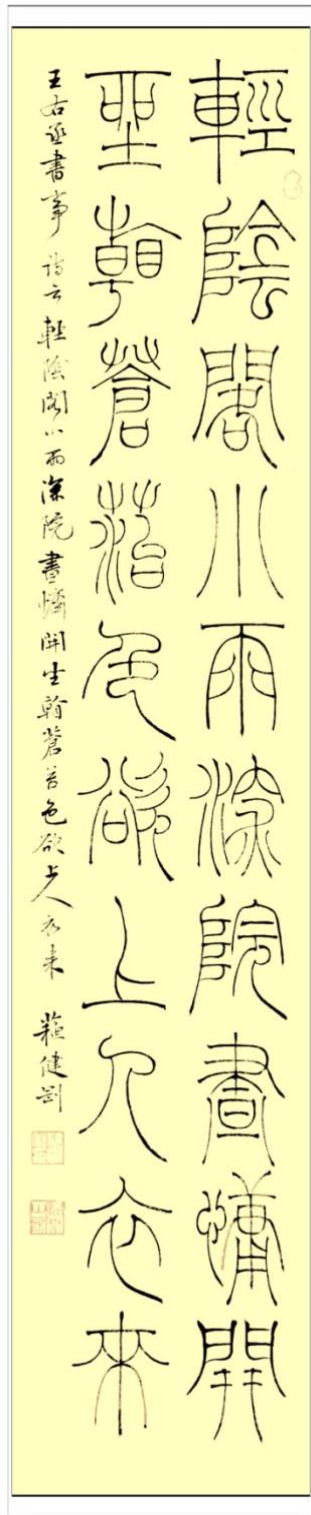 輕陰閣小雨深院晝慵開
坐看蒼苔色欲上人衣來
王右丞書事詩云輕陰閣小雨深院晝慵開坐看蒼苔色欲上人衣来 蘓健